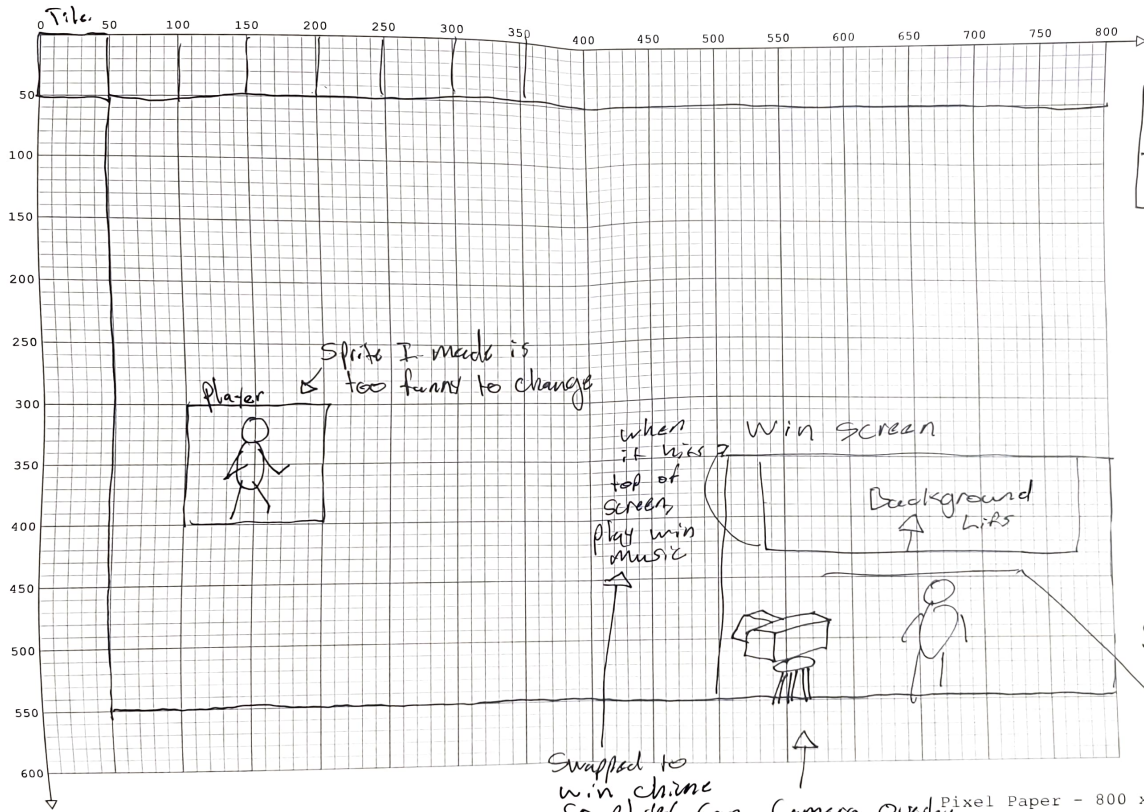 Tile
0 50 100 150 200 250 300 350 400 450 500 550 600 650 700 750 800
50
100
150
200
250
300
350
400
450
500
550
600
Sprite I made is
too funny to change
Player
when
it hits
top of
screen,
play win
music
Win Screen
Background
Lifts
Swapped to
win chime
Camera
Pixel Paper - 800 x